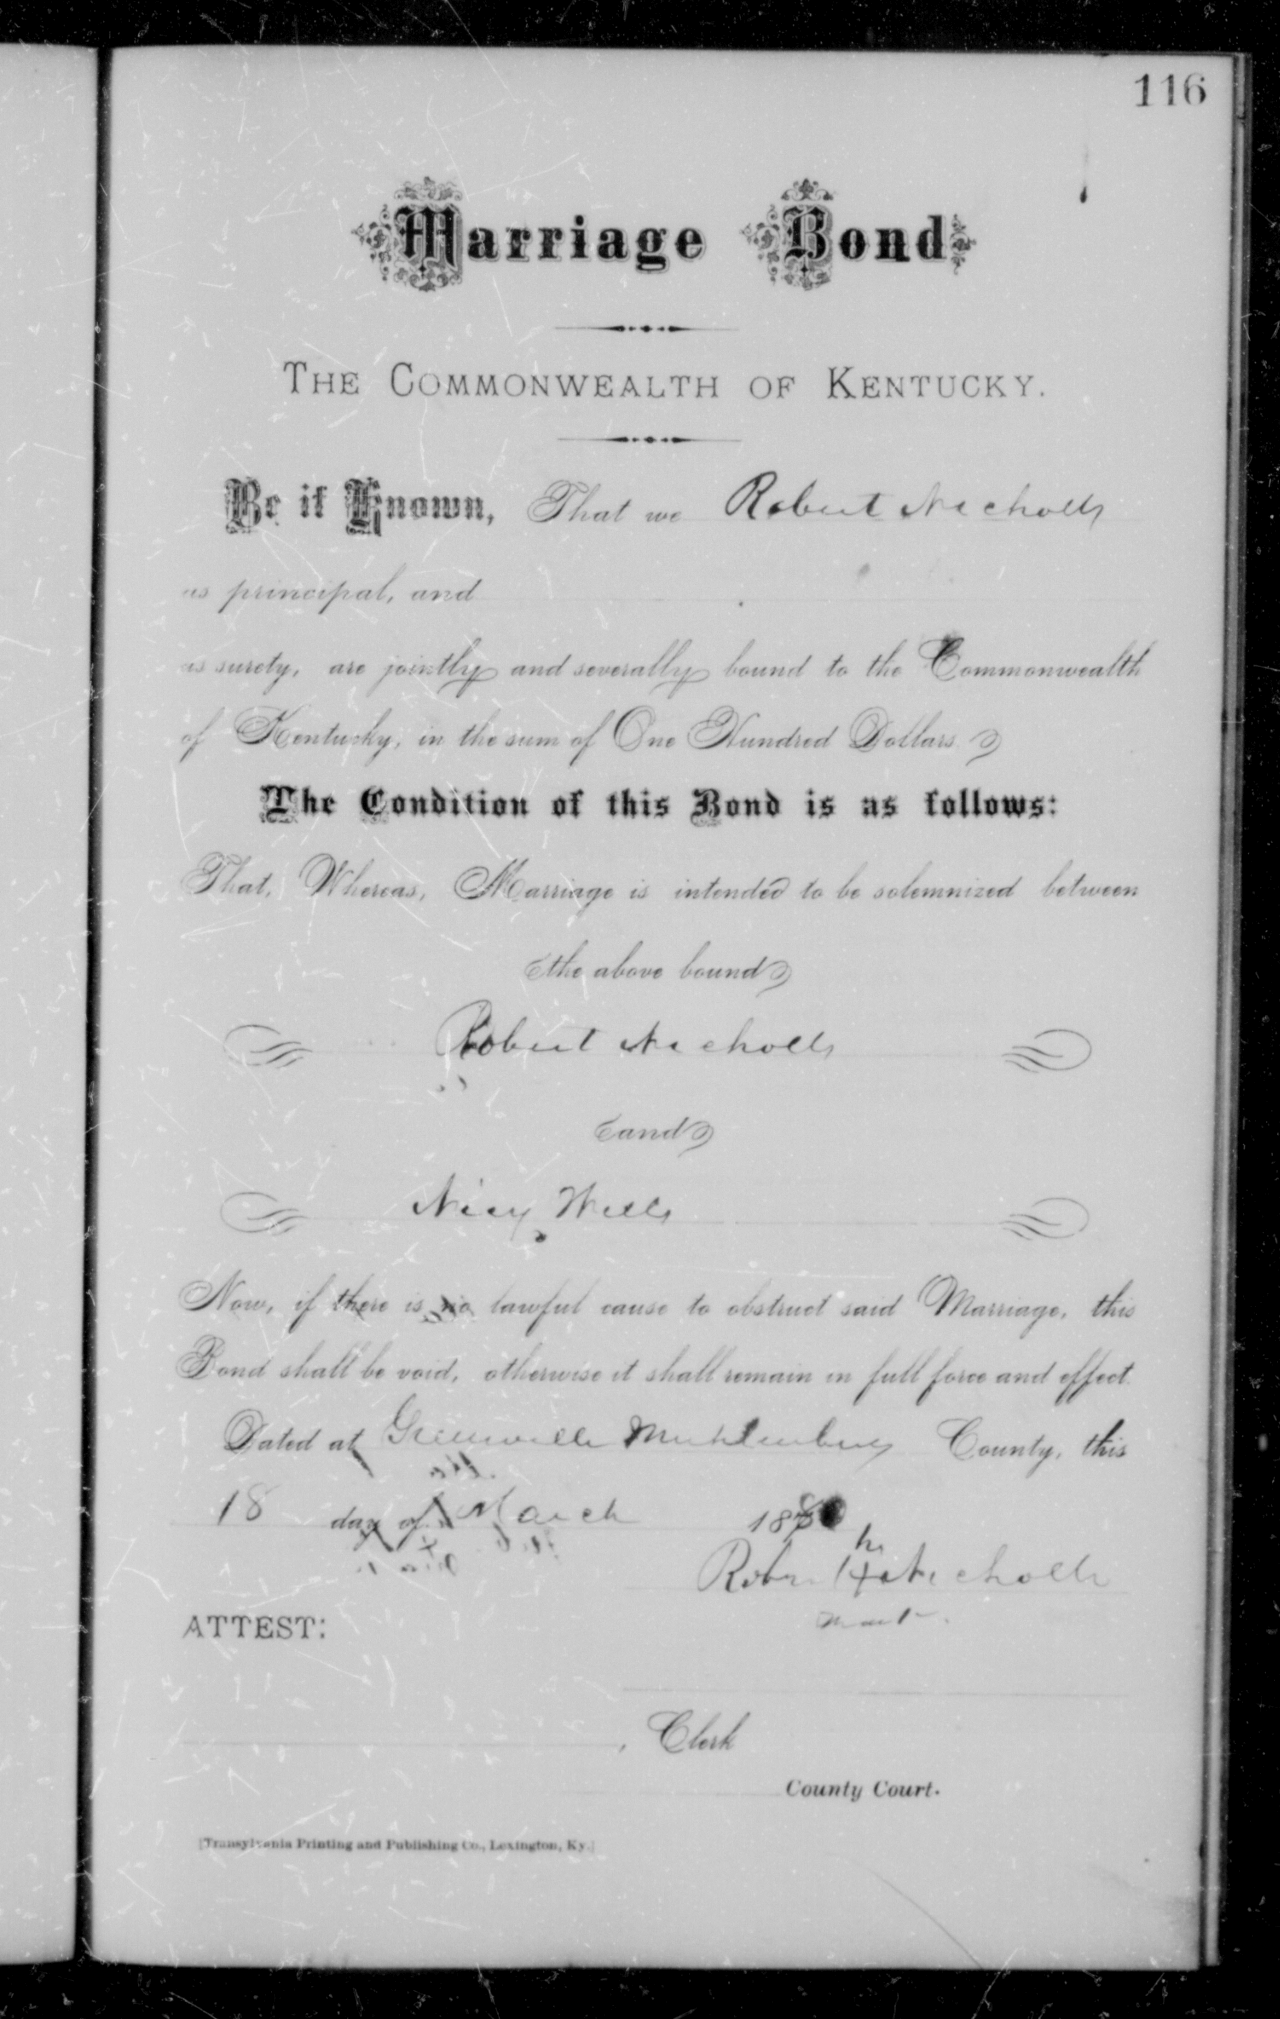 116
Marriage Bond
THE COMMONWEALTH OF KENTUCKY.
Be it Known, That we Robert Nicholls
as principal, and
as surety, are jointly and severally bound to the Commonwealth
of Kentucky, in the sum of One Hundred Dollars
The Condition of this Bond is as follows:
That, Whereas, Marriage is intended to be solemnized between
the above bound
Robert Nicholls
and
Nicy Wells
Now, if there is no lawful cause to obstruct said Marriage, this
Bond shall be void, otherwise it shall remain in full force and effect.
Dated at Greenville Muhlenburg County, this
18 day of March 188
his
Robert X Nicholls
mark
ATTEST:
, Clerk
County Court.
[Transylvania Printing and Publishing Co., Lexington, Ky.]